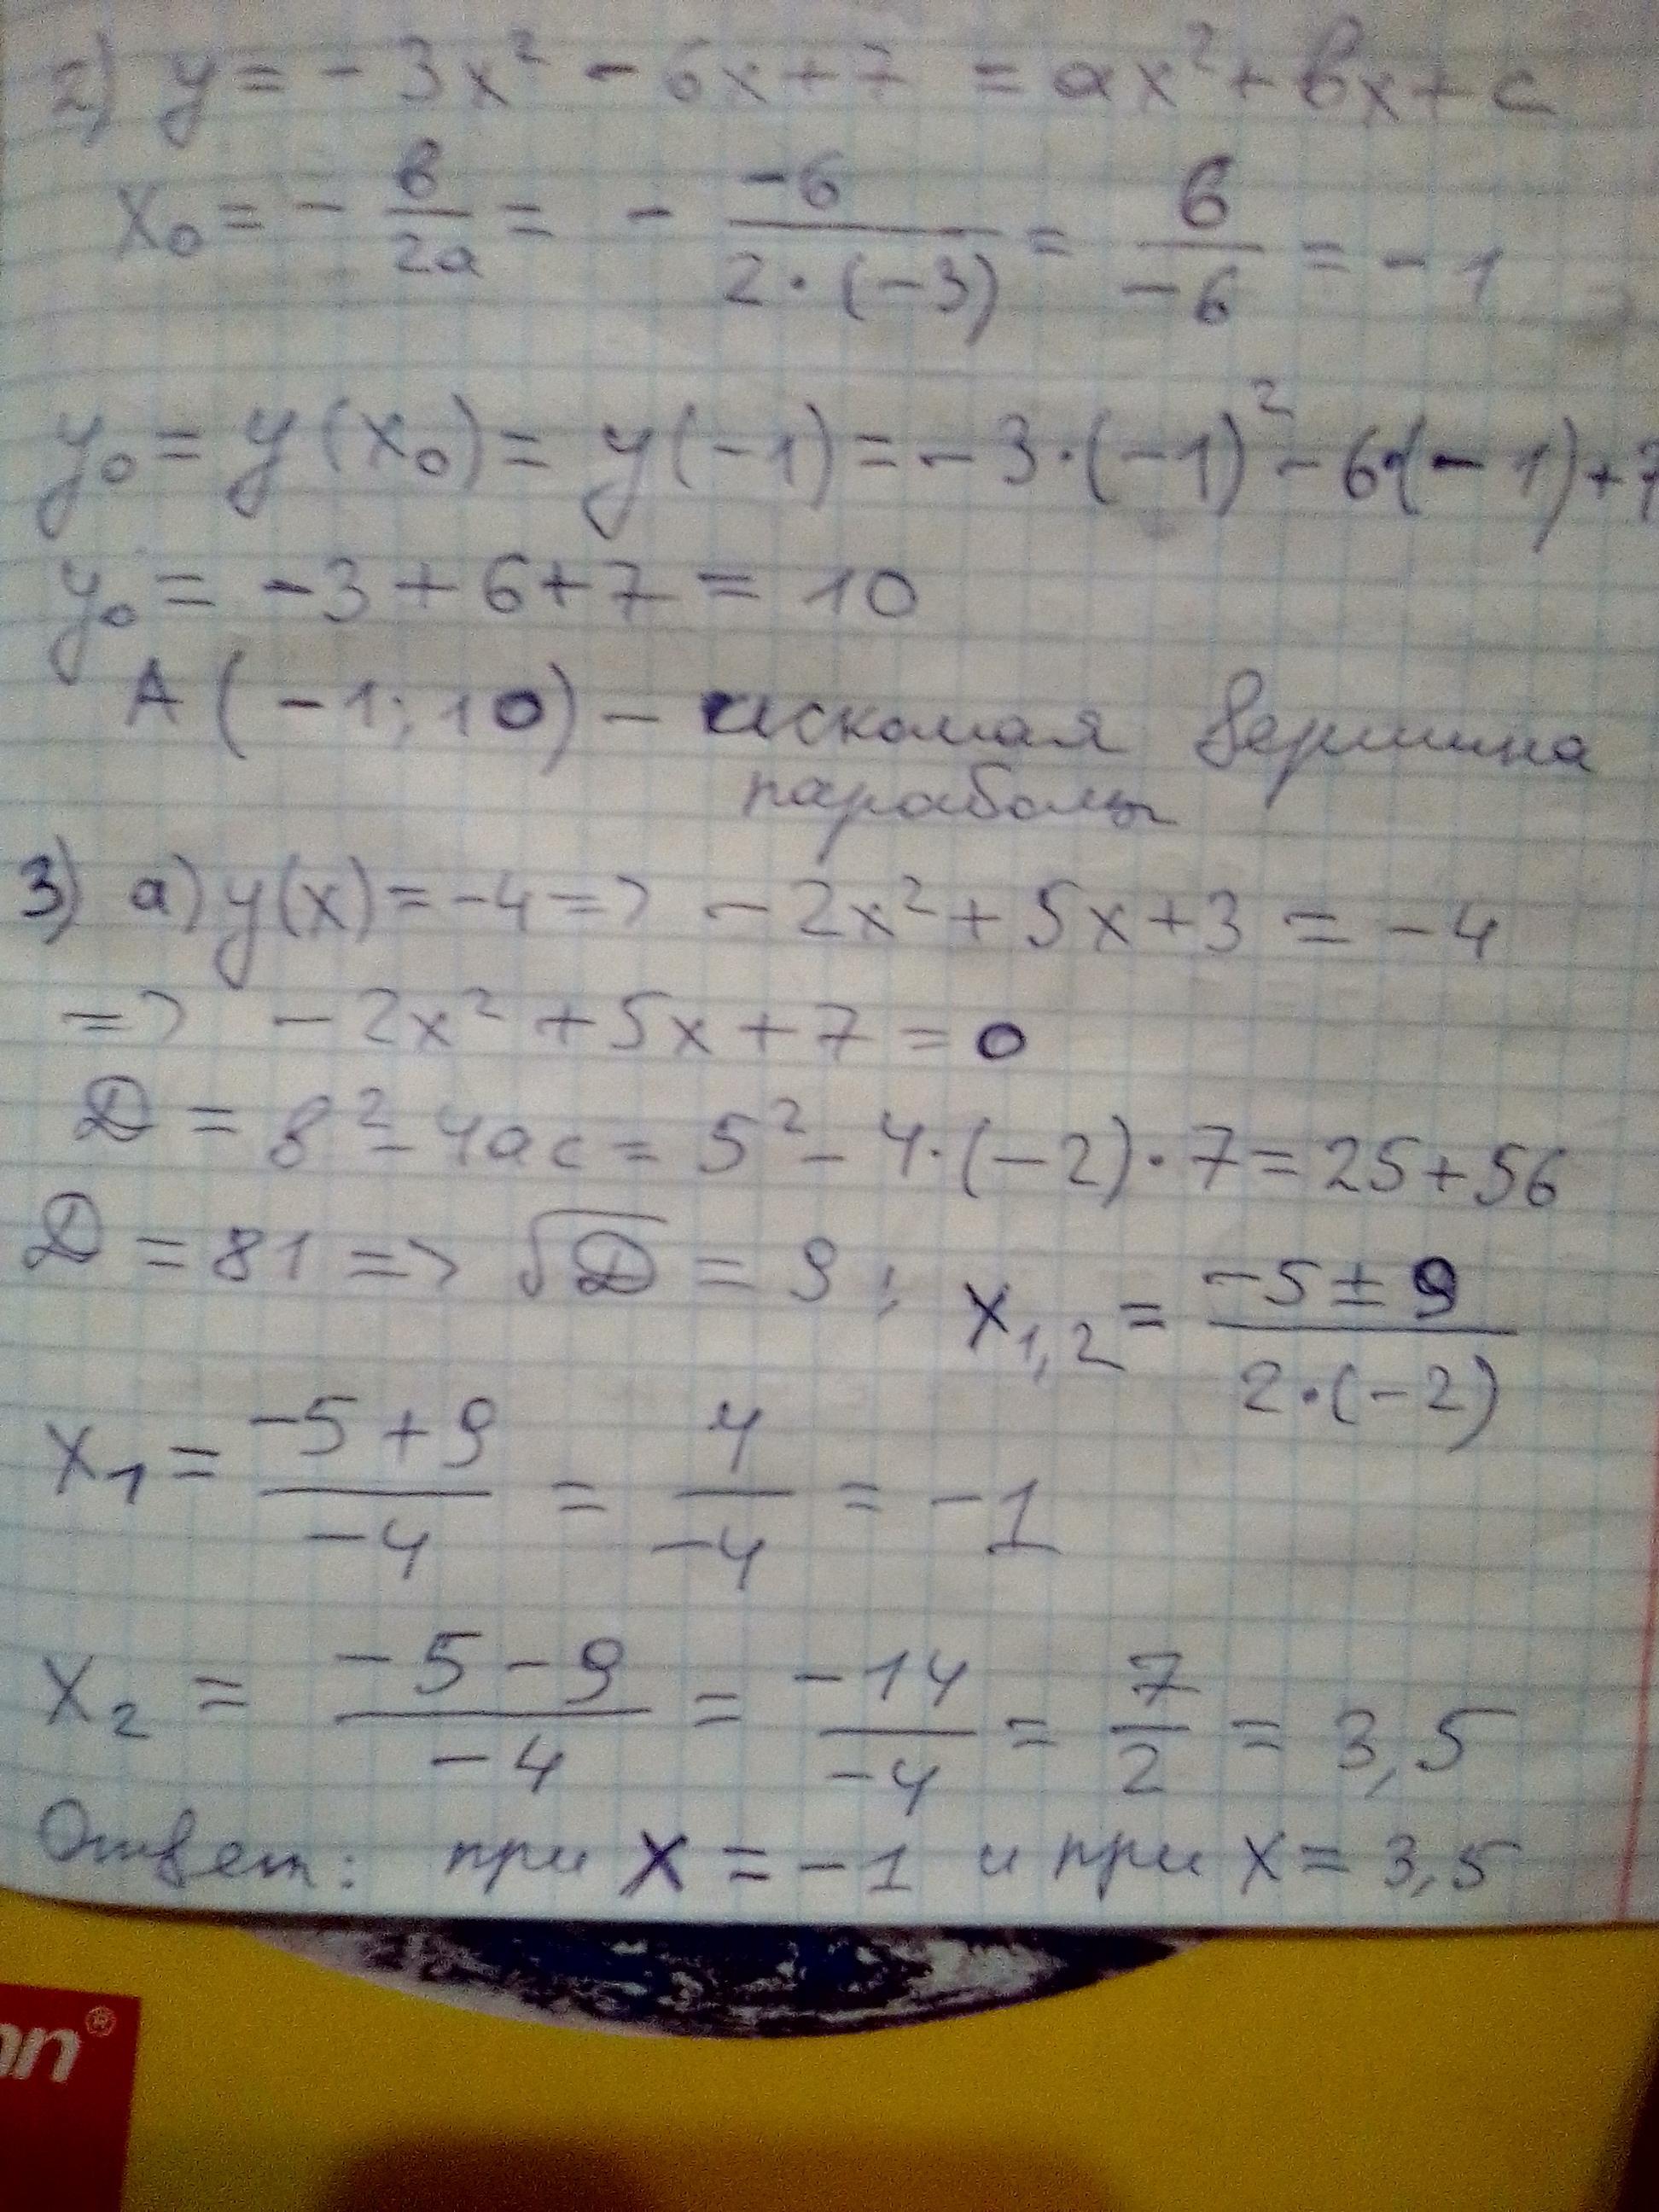 2) y = -3x² - 6x + 7 = ax² + bx + c
x₀ = - b/2a = - -6/2·(-3) = 6/-6 = -1
y₀ = y(x₀) = y(-1) = -3·(-1)² - 6·(-1) + 7
y₀ = -3 + 6 + 7 = 10
A(-1; 10) – искомая вершина
параболы
3) а) y(x) = -4 => -2x² + 5x + 3 = -4
=> -2x² + 5x + 7 = 0
D = b² - 4ac = 5² - 4·(-2)·7 = 25 + 56
D = 81 => √D = 9; x₁,₂ = -5 ± 9/2·(-2)
x₁ = -5+9/-4 = 4/-4 = -1
x₂ = -5-9/-4 = -14/-4 = 7/2 = 3,5
Ответ: при x = -1 и при x = 3,5